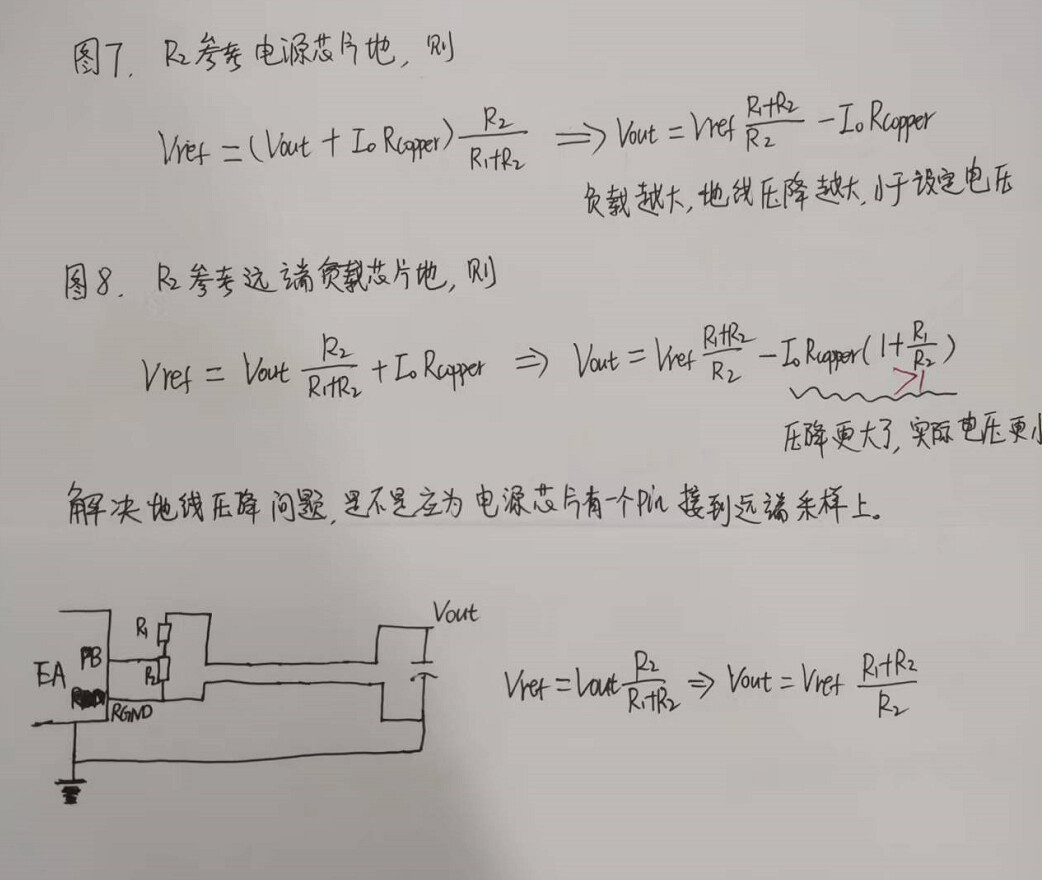 图7. R2参考电源芯片地,则
Vref = (Vout + Io Rcopper) R2/(R1+R2) ⟹ Vout = Vref (R1+R2)/R2 − Io Rcopper
负载越大,地线压降越大,小于设定电压
图8. R2参考远端负载芯片地,则
Vref = Vout R2/(R1+R2) + Io Rcopper ⇒ Vout = Vref (R1+R2)/R2 − Io Rcopper (1+R1/R2)
>1
压降更大了,实际电压更小
解决地线压降问题,是不是应为电源芯片有一个Pin接到远端采样上。
Vout
R1
FB
EA
R2
RGND
Vref = Vout R2/(R1+R2) ⇒ Vout = Vref (R1+R2)/R2